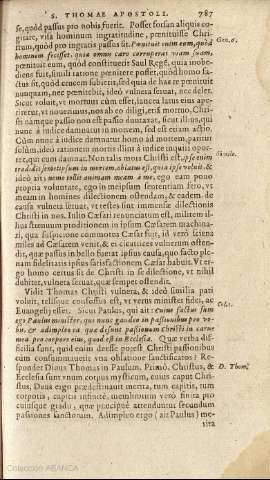 S. THOMAE APOSTOLI. 787
se, quod passus pro nobis fuerit. Posset forsan aliquis co-
gitare, vita hominum ingratitudine, pœnituisse Chri-
stum, quòd pro ingratis passus sit. Pœnituit enim eum, quòd Gen. 6.
hominem fecisset, quia omnis caro corruperat viam suam,
pœnituit eum, quòd constituerit Saul Regē, quia inobe-
diens fuit, simili ratione pœnitere posset, quòd homo fa-
ctus sit, quòd crucem subierit, sed quia de hac re pœnituit
nunquam, nec pœnitebit, ideò vulnera servat, nec delet.
Sicut voluit, vt mortuus cùm esset, lancea latus eius ape-
riretur, vt noverimus, non ab eo diligi, etiā mortuo, Chri-
stū námque passo non est passio duratura, sicut illius, qui
nunc à iudice damnatur in mortem, sed est etiam actio.
Cùm nunc à iudice damnatur homo ad mortem, patitur
solùm, ideò rationem mortis illius à iudice inquiri opor-
tet, qui eum damnat. Non talis mors Christi est, ipse enim Simile.
tradidit semetipsum in mortem, oblatus est, quia ipse voluit, &
ideò ait: nemo tollit animam meam à me, ego eam pono
propria voluntate, ego in meipsum sententiam fero, vt
meam in homines dilectionem ostendam, & eadem de
causa vulnera servat, vt testes sint immensæ dilectionis
Christi in nos. Iulio Cæsari renunciatum est, militem il-
lius strenuum proditionem in ipsum Cæsarem machina-
ri, qua suspicione commotus Cæsar fuit, id verò sciens
miles ad Cæsarem venit, & ei cicatrices vulnerum osten-
dit, quæ passus in bello fuerat ipsius causa, quo facto ple-
nam fidelitatis ipsius satisfactionem Cæsar habuit. Vt er-
go homo certus sit de Christi in se dilectione, vt nihil
dubitet, vulnera servat, quæ semper ostendit.
Vidit Thomas Christi vulnera, & ideò similia pati
voluit, telisque confossus est, vt verus minister fidei, ac
Euangelij esset. Sicut Paulus, qui ait: cuius factus sum Colo. 1.
ego Paulus minister, qui nunc gaudeo in passionibus pro vo-
bis, & adimpleo ea, quæ desunt passionum Christi in carne
mea pro corpore eius, quod est in Ecclesia. Quæ verba dif-
ficilia sunt, quid enim deesse potest Christi passionibus
cùm consummaverit vna oblatione sanctificatos? Re-
spondet Divus Thomas in Paulum. Primò, Christus, & D. Thom.
Ecclesia sunt vnum corpus mysticum, cuius caput Chri-
stus. Deus ergo prædestinavit merita, tum capitis, tum
corporis, capitis infinite, membrorum verò finita pro
cuiusque gradu, quæ præcipuè attenduntur secundum
passiones sanctorum. Adimpleo ergo (ait Paulus) me-
rita
Colección ABANCA